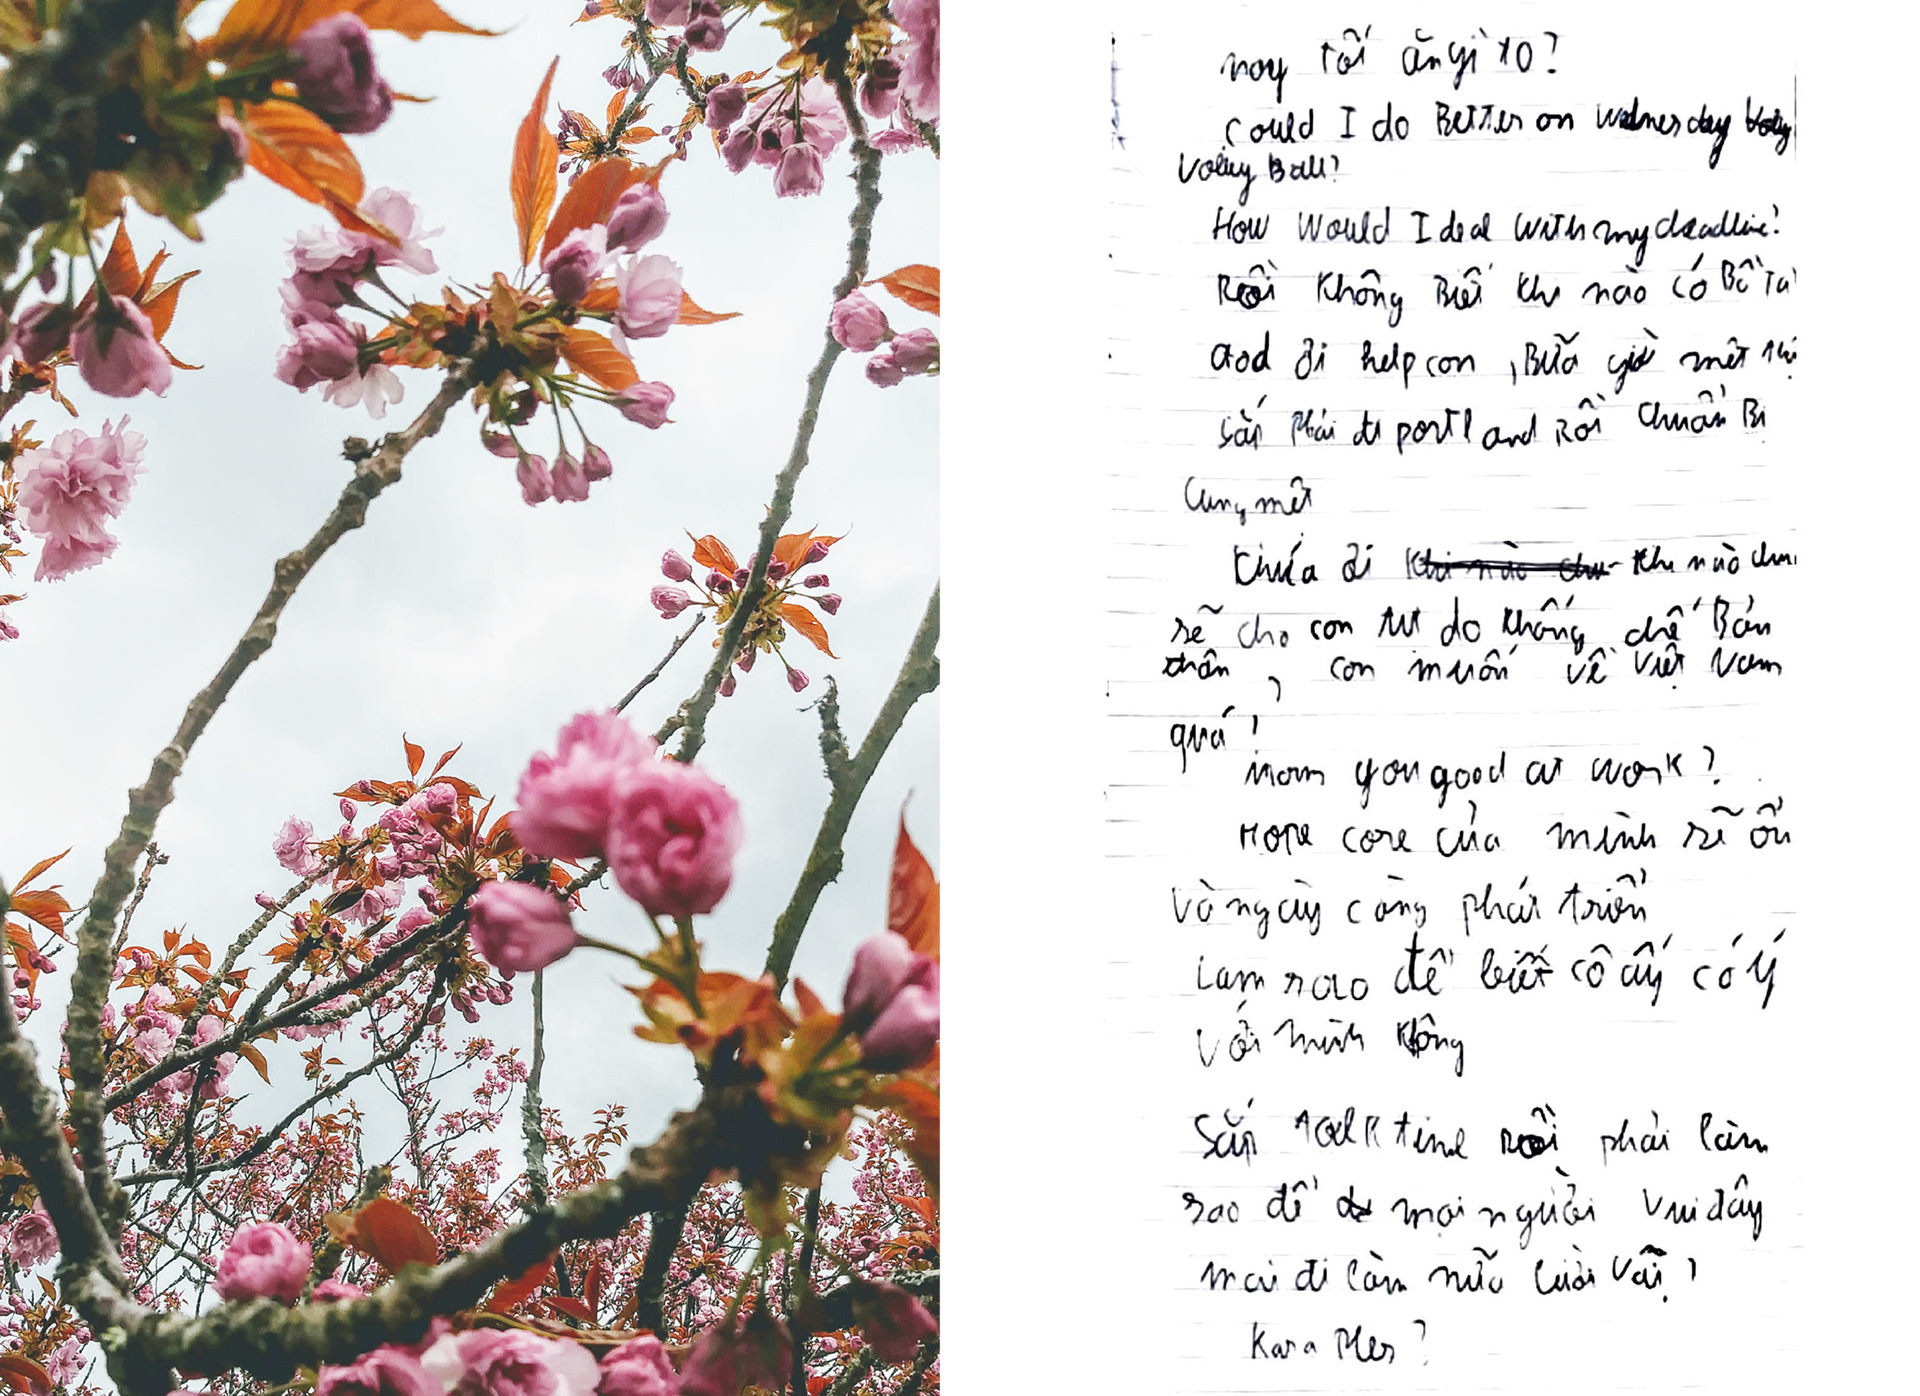 nay tối ăn gì ta?
Could I do Better on Wednesday
Volley Ball?
How Would I deal With my deadline?
Rồi Không Biết khi nào có Bồ Ta
God đi help con, Bữa giờ mệt
sắp Phải đi portland Rồi Chuẩn Bị
Cung mệt
Chúa ơi khi nào chúa
sẽ cho con tự do khống chế Bản
thân, con muốn về Việt Nam
quá!
Mom you good at work?
Hope core của mình sẽ ổn
Và ngày càng phát triển
Làm sao để biết cô ấy có ý
với mình không
Sắp talk time rồi phải làm
sao để mọi người vui đây
mai đi làm nữa lười vãi?
Kara